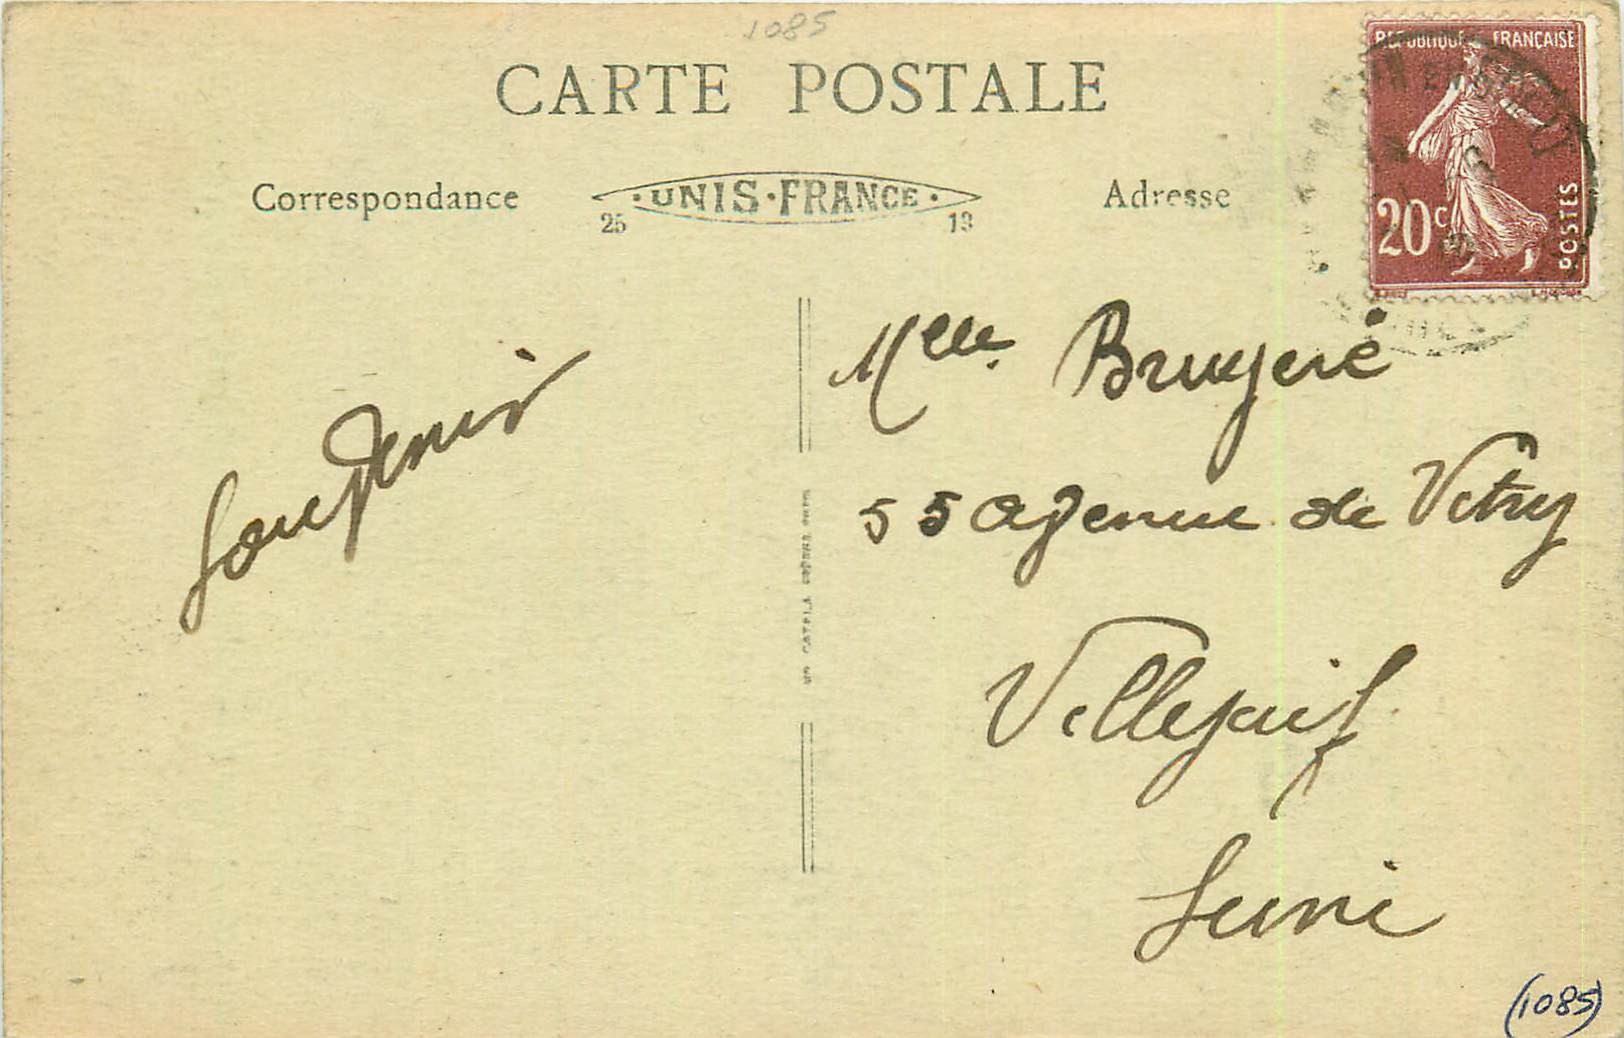 1085
CARTE POSTALE
Correspondance
·UNIS·FRANCE·
25 13
Adresse
REPUBLIQUE FRANÇAISE
20c
POSTES
Souvenir
Mlle Bruyere
55 avenue de Vitry
Villejuif
Seine
(1085)